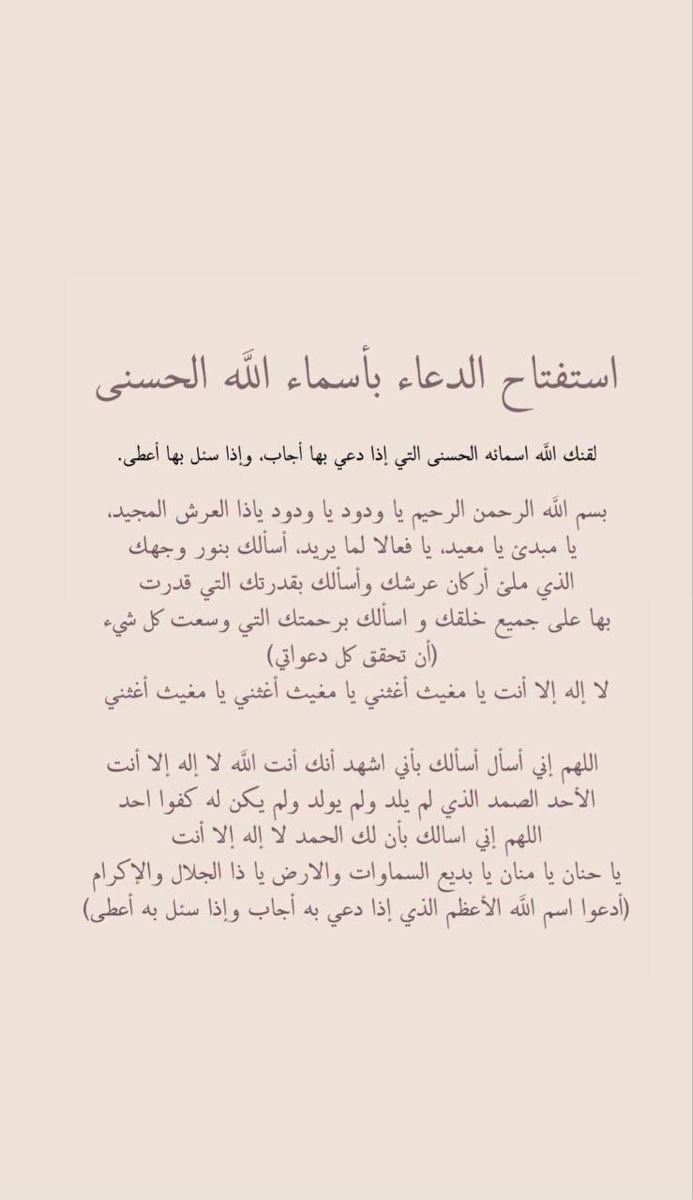 استفتاح الدعاء بأسماء اللَّه الحسنى
لقنك اللَّه اسمائه الحسنى التي إذا دعي بها أجاب، وإذا سئل بها أعطى.
بسم اللَّه الرحمن الرحيم يا ودود يا ودود ياذا العرش المجيد،
يا مبدئ يا معيد، يا فعالا لما يريد، أسألك بنور وجهك
الذي ملئ أركان عرشك وأسألك بقدرتك التي قدرت
بها على جميع خلقك و اسألك برحمتك التي وسعت كل شيء
(أن تحقق كل دعواتي)
لا إله إلا أنت يا مغيث أغثني يا مغيث أغثني يا مغيث أغثني
اللهم إني أسأل أسألك بأني اشهد أنك أنت اللَّه لا إله إلا أنت
الأحد الصمد الذي لم يلد ولم يولد ولم يكن له كفوا احد
اللهم إني اسالك بأن لك الحمد لا إله إلا أنت
يا حنان يا منان يا بديع السماوات والارض يا ذا الجلال والإكرام
(أدعوا اسم اللَّه الأعظم الذي إذا دعي به أجاب وإذا سئل به أعطى)